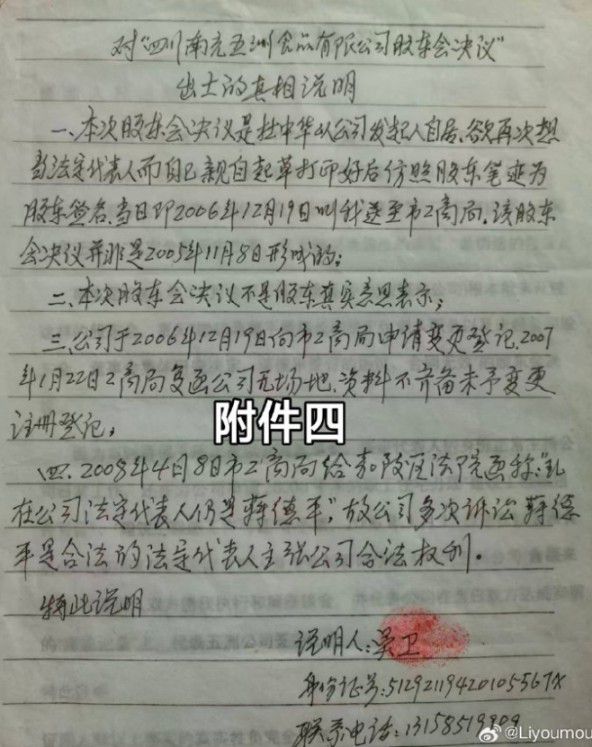 对“四川南充五洲食品有限公司股东会决议”
出土的真相说明
一、本次股东会决议是杜中华以公司发起人自居、欲再次想
当法定代表人而自己亲自起草打印好后仿照股东笔迹为
股东签名、当日即2006年12月19日叫我送至市工商局。该股东
会决议并非是2005年11月8日形成的;
二、本次股东会决议不是股东真实意思表示;
三、公司于2006年12月19日向市工商局申请变更登记、2007
年1月22日工商局复函公司无场地、资料不齐备未予变更
注册登记。
附件四
四、2008年4月8日市工商局给嘉陵区法院函称:“现
在公司法定代表人仍是蒋德平”,故公司多次诉讼蒋德
平是合法的法定代表人主张公司合法权利。
特此说明
说明人:吴卫
身份证号:51292119420105567X
联系电话:13158519909
@Liyoumou